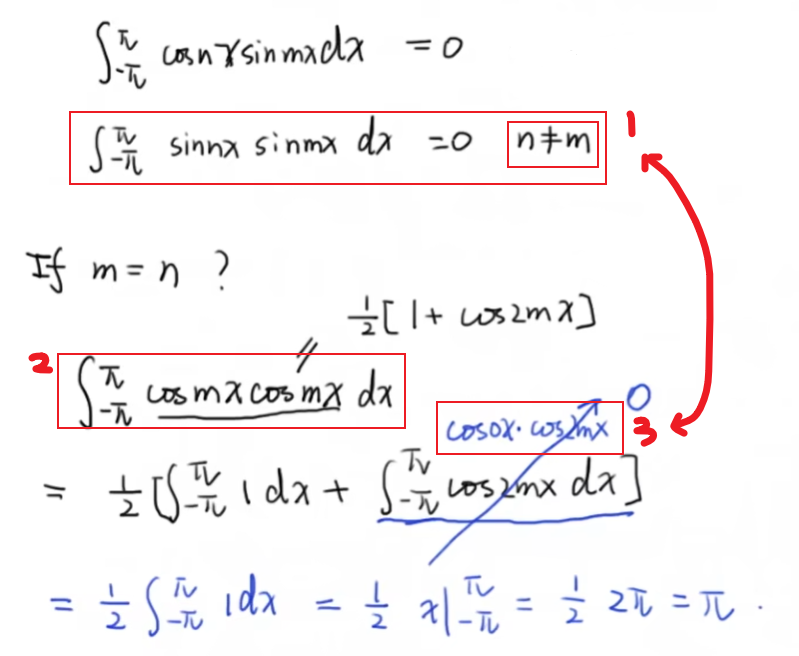 ∫_{-π}^{π} cosnx sinmx dx = 0
∫_{-π}^{π} sinnx sinmx dx = 0 n≠m
1
If m = n ?
1/2 [1 + cos2mx]
2
∫_{-π}^{π} cosmx cosmx dx
cos0x · cos2mx
0
3
= 1/2 [∫_{-π}^{π} 1 dx + ∫_{-π}^{π} cos2mx dx]
= 1/2 ∫_{-π}^{π} 1 dx = 1/2 x|_{-π}^{π} = 1/2 2π = π .